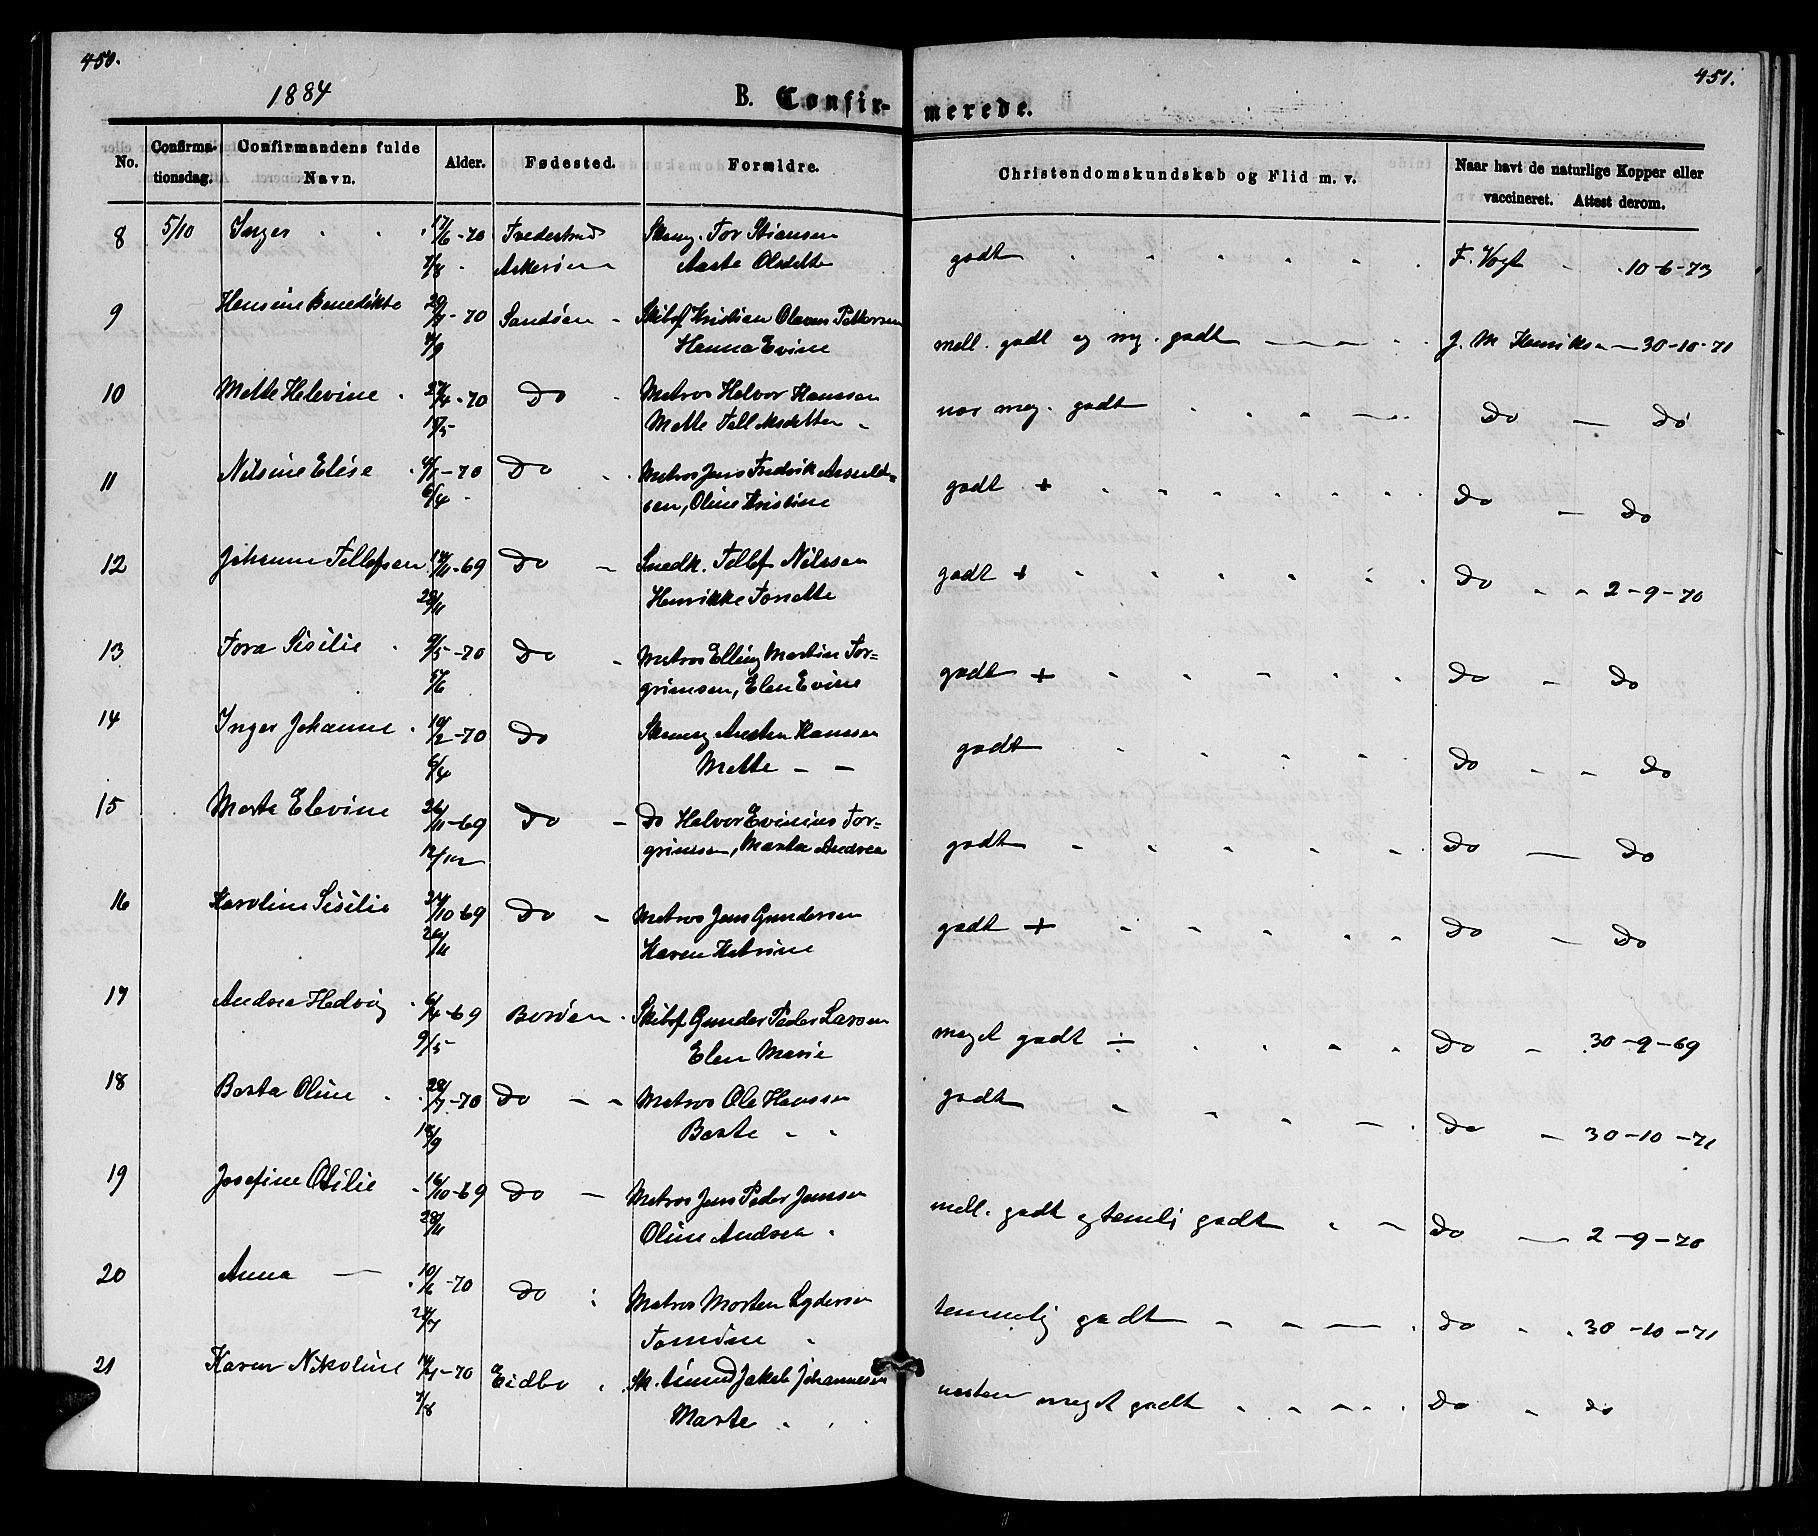 450.
451.
1884
B. Confir-
merede.
No.
Confirma-
tionsdag.
Confirmandens fulde
Navn.
Alder.
Fødested.
Forældre.
Christendomskundskab og Flid m. v.
Naar havt de naturlige Kopper eller
vaccineret. Attest derom.
8 5/10 Inger 17/6-70 Skomg. Tor Stiansen
7/8 Askerøen Aaste Olsdatter
godt F. Vogt 10-6-73
9 Hansine Benedikte 29/7-70 Sandøen Skibsf Kristian Olaves Pettersen
4/9 Hanna Evine
mell. godt og mg. godt J. M Henriksen 30-10-71
10 Mette Helevine 27/4-70 Do Matros Halvor Hanssen
15/5 Mette
nær meg. godt Do Do
11 Nilsine Elise -70 Do Matros Jens Fredrik Arnulds=
6/4 sen, Oline Kristine
godt + Do Do
12 Johanne Tellefsen 14/11-69 Do Snedk. Tellef Nilssen
28/11 Henrikke Tonette
godt + Do 2-9-70
13 Tora Sisilie 9/5-70 Do Matros Elling Martin Tor=
5/6 grimsen, Elen Evine
godt + Do Do
14 Inger Johanne 19/2-70 Do Hanssen
6/4 Mette
godt Do Do
15 Marta Elevine 26/11-69 Do Do Halvor Evinius Tor=
12/12 grimsen, Marta Andrea
godt Do Do
16 Karoline Sisilie 24/10-69 Do Matros Jens Gundersen
26/11 Karen Katrine
godt + Do Do
17 Andrea Hedvig 6/4-69 Borøen Skibsf Gunder Peder Larsen
9/5 Elen Marie
meget godt ÷ Do 30-9-69
18 Berta Oline 28/7-70 Do Matros Ole Hanssen
18/9 Berte
godt Do 30-10-71
19 Josefine Otilie 16/10-69 Do Matros Jens Peder Jenssen
28/11 Oline Andrea
mell. godt og temlig godt Do 2-9-70
20 Anna 10/6-70 Do Matros Morten Lydersen
24/7 Tomine
temmelig godt Do 30-10-71
21 Karen Nikoline -70 Eidbo Sk. Amund Jakob Johannesen
7/8 Marte
næsten meget godt Do do